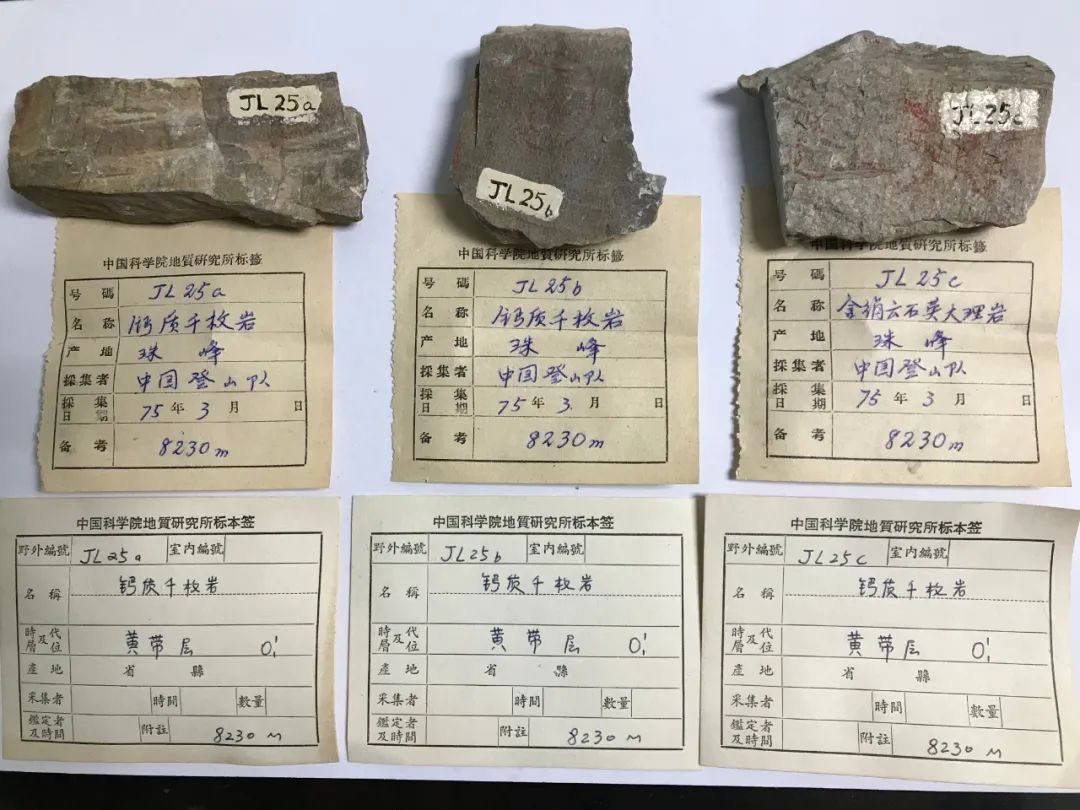 JL 25a
JL 25b
JL 25c
中国科学院地質研究所标籤
号碼 JL 25a
名称 钙质千枚岩
产地 珠峰
採集者 中国登山队
採集日期 75年3月 日
备考 8230m
中国科学院地質研究所标籤
号碼 JL 25b
名称 钙质千枚岩
产地 珠峰
採集者 中国登山队
採集日期 75年3月 日
备考 8230m
中国科学院地質研究所标籤
号碼 JL 25c
名称 含绢云石英大理岩
产地 珠峰
採集者 中国登山队
採集日期 75年3月 日
备考 8230m
中国科学院地質研究所标本签
野外編號 JL 25a 室内編號
名稱 钙质千枚岩
時代及層位 黄带层 O₁¹
產地 省 縣
采集者 時間 數量
鑑定者及時間 附註 8230 M
中国科学院地質研究所标本签
野外編號 JL 25b 室内編號
名稱 钙质千枚岩
時代及層位 黄带层 O₁¹
產地 省 縣
采集者 時間 數量
鑑定者及時間 附註 8230 M
中国科学院地質研究所标本签
野外編號 JL 25c 室内編號
名稱 钙质千枚岩
時代及層位 黄带层 O₁¹
產地 省 縣
采集者 時間 數量
鑑定者及時間 附註 8230 M